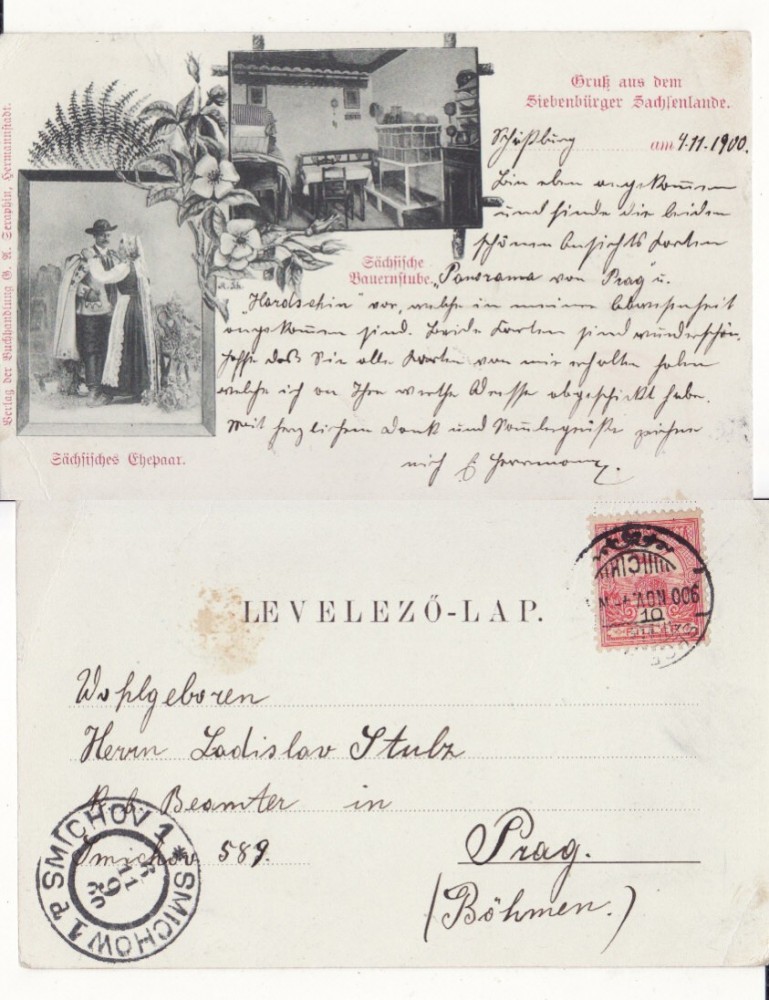 Gruß aus dem
Siebenbürger Sachsenlande.
Schäßburg am 4.11.1900.
Bin eben angekommen
und finde die beiden
schönen Ansichtskarten
"Panorama von Prag" u.
"Hardschin" vor, welche in meiner Abwesenheit
angekommen sind. Beide Karten sind wunderschön,
hoffe daß Sie alle Karten von mir erhalten haben
welche ich an Ihre werthe Adresse abgeschickt habe.
Mit herzlichem Dank und zeichne
mich E Herrmann.
Sächsische
Bauernstube.
Sächsisches Ehepaar.
Verlag der Buchhandlung G. A. Seraphin, Hermannstadt.
LEVELEZŐ-LAP.
Wohlgeboren
Herrn Ladislav Stulz
k. b. Beamter in
Smichov 589. Prag.
(Böhmen.)
SMICHOV 1 * SMICHOW 1
900 NOV.
10